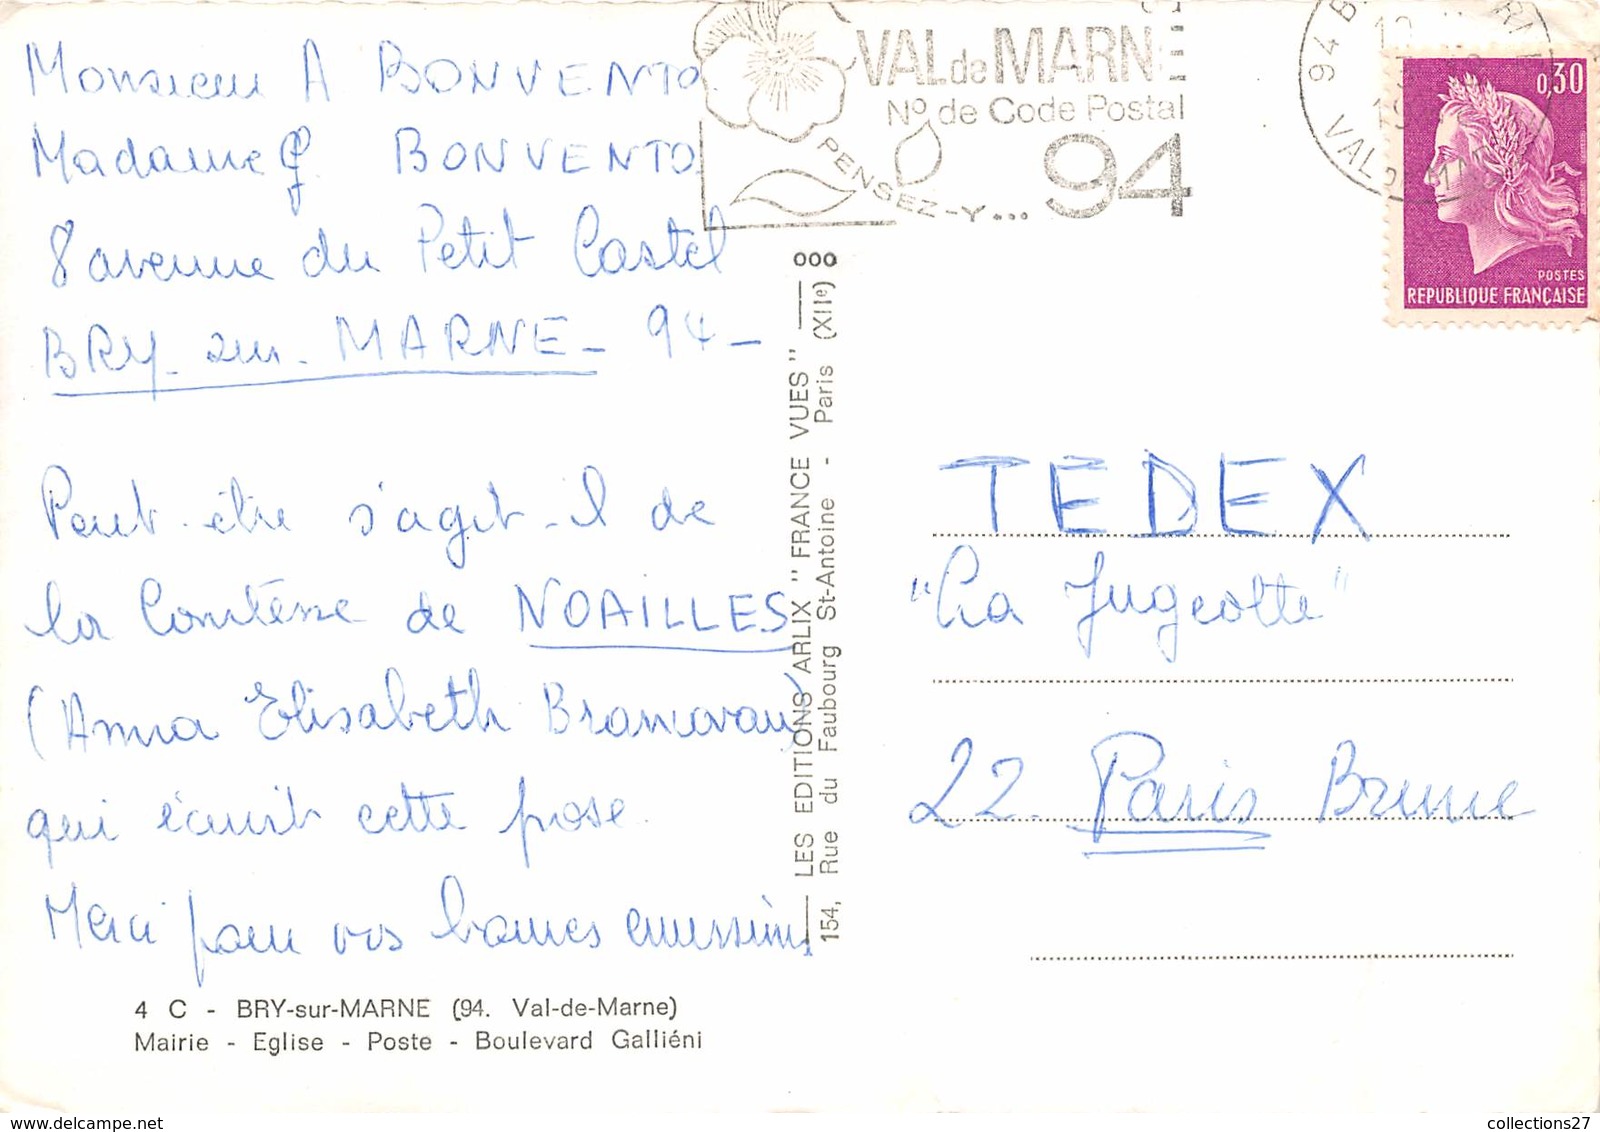 Monsieur A BONVENTO
Madame J. BONVENTO
8 avenue du Petit Castel
BRY-sur-MARNE - 94 -
Peut-être s'agit-il de
la Contesse de NOAILLES
(Anna Elisabeth Brancovan)
qui écrivit cette prose.
Merci pour vos bonnes emissions
4 C - BRY-sur-MARNE (94. Val-de-Marne)
Mairie - Eglise - Poste - Boulevard Galliéni
VAL de MARNE
N° de Code Postal
94
PENSEZ-Y...
LES EDITIONS ARLIX "FRANCE VUES"
154, Rue du Faubourg St-Antoine - Paris (XIIe)
000
94 B
VAL D MARNE
0,30
POSTES
REPUBLIQUE FRANÇAISE
TEDEX
"La Jugeotte"
22. Paris Brune
collections27